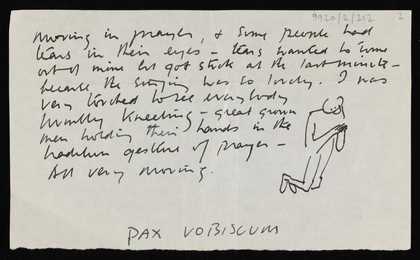 9920/2/212 2
moving in prayer, & some people had
tears in their eyes – tears wanted to come
out of mine but got stuck at the last minute –
because the singing was so lovely. I was
very touched to see everybody
humbly kneeling – great grown
men holding their hands in the
tradition gesture of prayer –
All very moving.
PAX VOBISCUM